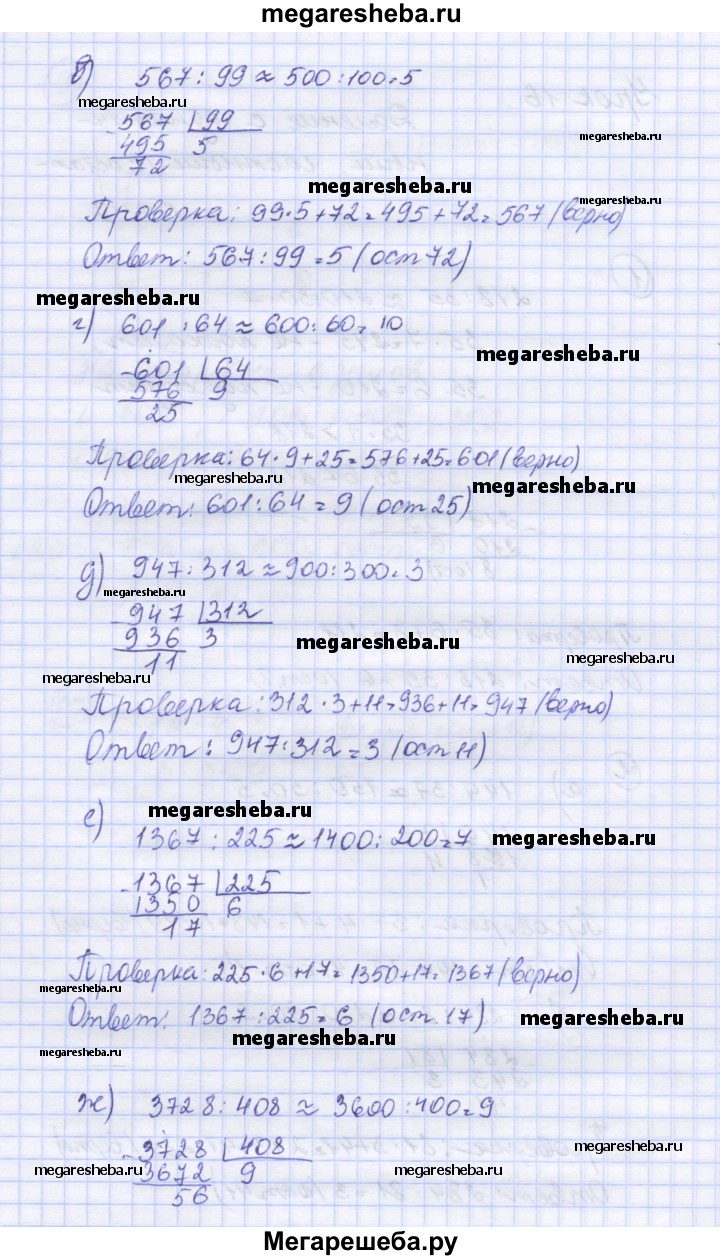 megaresheba.ru
в) 567 : 99 ≈ 500 : 100 = 5
megaresheba.ru
567 | 99
495 5
72
megaresheba.ru
Проверка: 99·5+72=495+72=567 (верно)
Ответ: 567 : 99 = 5 (ост 72)
megaresheba.ru
г) 601 : 64 ≈ 600 : 60 = 10
megaresheba.ru
601 | 64
576 9
25
Проверка: 64·9+25=576+25=601 (верно)
megaresheba.ru
megaresheba.ru
Ответ: 601 : 64 = 9 (ост 25)
д) 947 : 312 ≈ 900 : 300 = 3
megaresheba.ru
947 | 312
936 3
megaresheba.ru
11
megaresheba.ru
megaresheba.ru
Проверка: 312·3+11=936+11=947 (верно)
Ответ: 947 : 312 = 3 (ост 11)
megaresheba.ru
е) 1367 : 225 ≈ 1400 : 200 = 7
megaresheba.ru
1367 | 225
1350 6
17
Проверка: 225·6+17=1350+17=1367 (верно)
megaresheba.ru
Ответ: 1367 : 225 = 6 (ост 17)
megaresheba.ru
megaresheba.ru
megaresheba.ru
ж) 3728 : 408 ≈ 3600 : 400 = 9
megaresheba.ru
3728 | 408
3672 9
megaresheba.ru
megaresheba.ru
56
Мегарешеба.ру